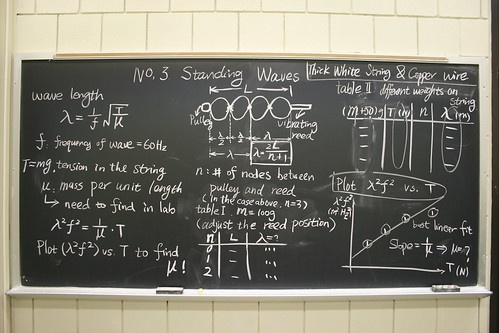 No. 3 Standing Waves
Thick White String & Copper wire
wave length
λ = 1/f √(T/μ)
f: frequency of wave = 60Hz
T=mg, tension in the string
μ: mass per unit length
↳ need to find in lab
λ²f² = 1/μ · T
Plot (λ²f²) vs. T to find
μ!
L
Pulley
vibrating
reed
λ/2 λ/2 λ
λ
λ = 2L/(n+1)
n: # of nodes between
pulley and reed
(in the case above, n=3)
table I. m=100g
(adjust the reed position)
n L λ=?
0
1
2
table II different weights on
string
(m+50)g T(N) n λ(m)
Plot λ²f² vs. T
λ²f²
(m²Hz²)
best linear fit
Slope = 1/μ ⇒ μ=?
T(N)